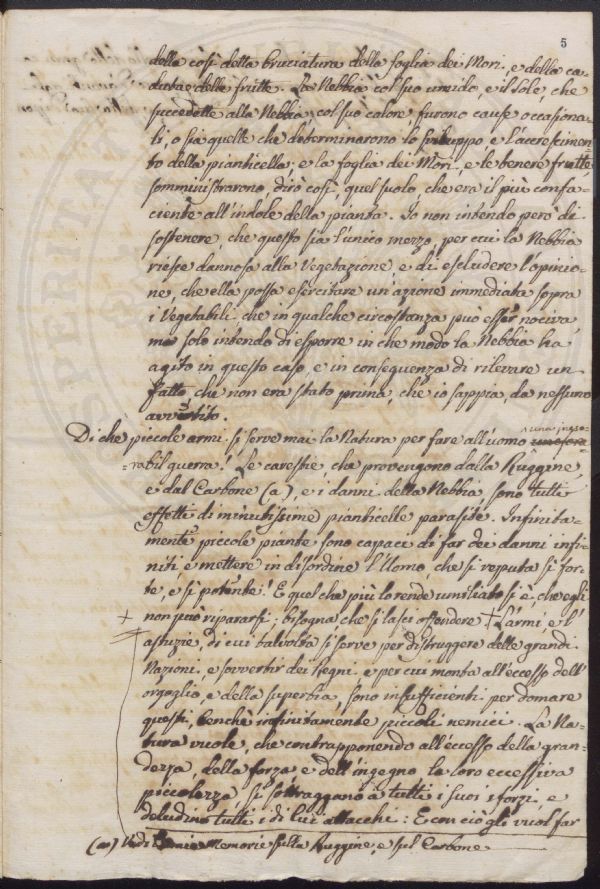 5
della così detta bruciatura della foglia dei Mori, e della ca-
duta delle frutte. La Nebbia col suo umido, e il Sole, che
succedette alla Nebbia, col suo calore furono cause occasiona-
li, o sia quelle che determinarono lo sviluppo, e l'accrescimen-
to della pianticella; e la foglia dei Mori, e le tenere frutte
somministrarono, dirò così, quel suolo, che era il più confa-
ciente all'indole della pianta. Io non intendo però di
sostenere, che questo sia l'unico mezzo, per cui la Nebbia
riesce dannosa alla Vegetazione, e di escludere l'opinio-
ne, che ella possa esercitare un'azione immediata sopra
i Vegetabili che in qualche circostanza può esser nociva,
ma solo intendo di esporre in che modo la Nebbia ha
agito in questo caso, e in conseguenza di rilevare un
fatto, che non era stato prima, che io sappia, da nessuno
avvertito.
una ineso-
Di che piccole armi si serve mai la Natura per fare all'uomo
rabil guerra! Le carestie, che provengono dalla Ruggine,
e dal Carbone (a), e i danni della Nebbia, sono tutti
effetti di minutissime pianticelle parasite. Infinita-
mente piccole piante sono capaci di far dei danni infi-
niti, e mettere in disordine l'Uomo, che si reputa sì for-
te, e sì potente! E quel che più lo rende umiliato si è, che egli
non può ripararsi; bisogna, che si lasci offendere + L'armi, e l'
+
astuzie, di cui talvolta si serve per distruggere delle grandi
Nazioni, e sovvertir dei Regni, e per cui monta all'eccesso dell'
orgoglio, e della superbia, sono insufficienti per domare
questi, benchè infinitamente piccoli nemici. La Na-
tura vuole, che contrapponendo all'eccesso della gran-
dezza, della forza, e dell'ingegno la loro eccessiva
piccolezza si sottraggano a tutti i suoi sforzi, e
deludino tutti i di lui attacche: E con ciò gli vuol far
(a) Vedi Memorie sulla Ruggine, e sul Carbone